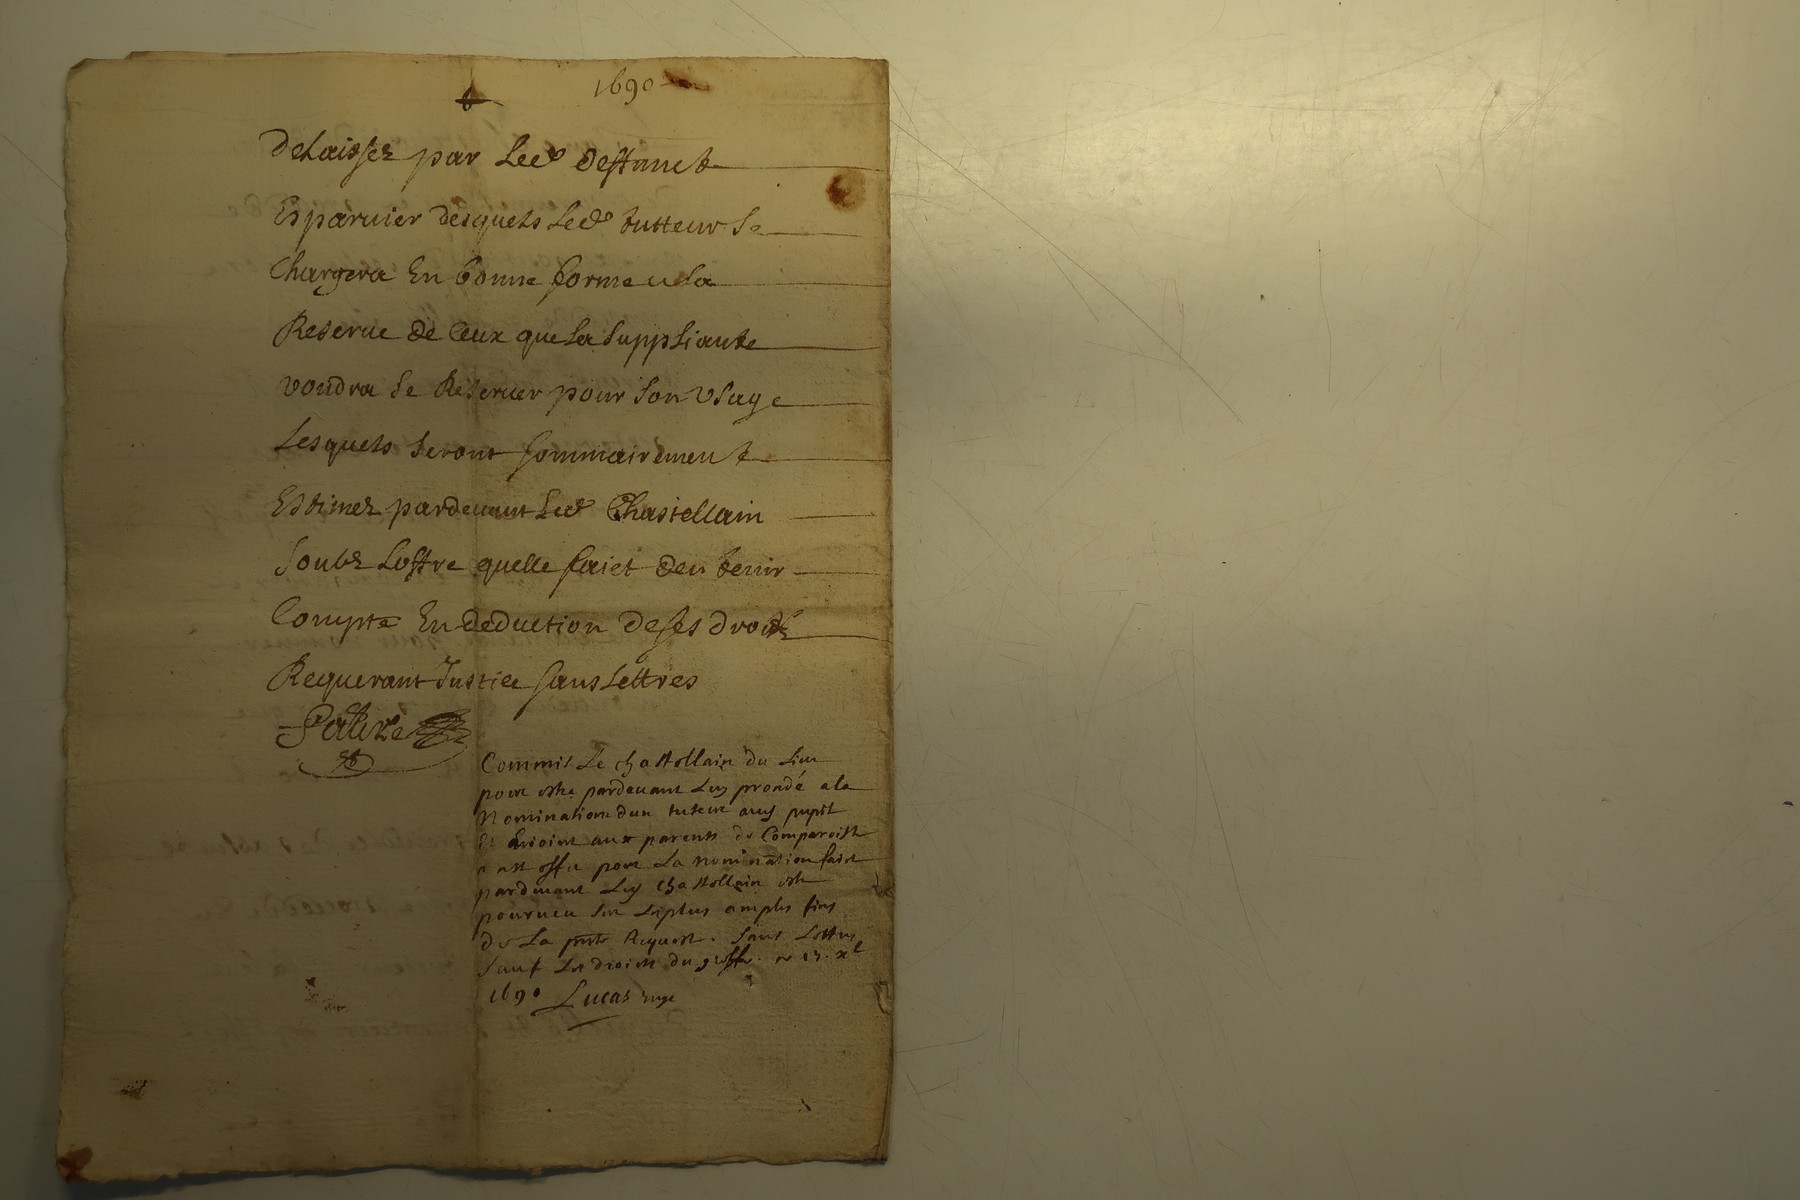 1690
delaissez par Led° deffunct
Esparuier desquels Led° tutteur Se
Chargera En bonne forme a la
Reserue de Ceux que La Suppliante
voudra Se Reseruer pour Son Vsage
Lesquels Seront Sommairement
Estimez pardeuant Led° Chastellain
Soubz Loffre quelle faict den tenir
Compte En deduction de ses droictz
Requerant Justice sans Lettres
Commis Le chastellain du Lieu
pour estre pardeuant Luy procedé a la
Nomination dun tuteur aux pupil
Et Enioint aux parents de Comparoistre
pour La nomination faicte
pardeuant Luy chastellain estre
pourueu sur Les plus amples fins
de La pnte Requeste. Sans Lettres
Sauf Les droicts du greffe. ce 13. xbre
1690 Lucas Juge